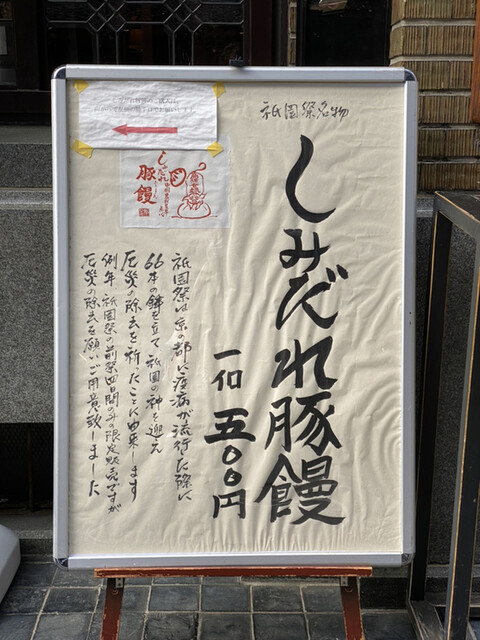 祇園祭名物
しみだれ豚饅
一個 五〇〇円
祇園祭は京の都に疫病が流行した際に
66本の鉾を立て 祇園の神を迎え
厄災の除去を祈ったことに由来します
例年 祇園祭の前祭四日間のみの限定販売ですが
厄災の除去を願いご用意致しました
しみだれ
豚饅